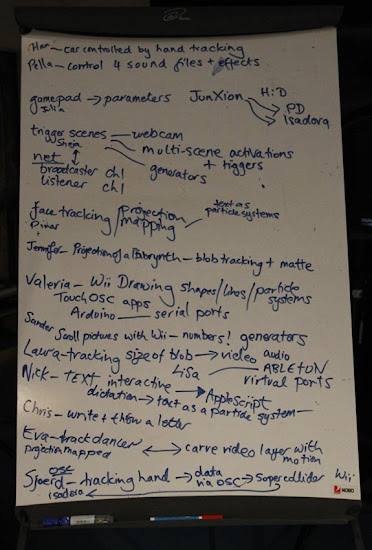 Han - car controlled by hand tracking
Pella - control 4 sound files + effects
gamepad → parameters JunXion H:D
Julia PD
Isadora
trigger scenes — webcam
Sheja
multi-scene activations
+ triggers
net generators
broadcaster ch1
listener ch1
face tracking/projection mapping text as particle systems
Pinar
Jennifer - Projection of a labrynth - blob tracking + matte
Valeria - Wii Drawing shapes/lines/particle systems
TouchOSC apps
Arduino — serial ports
Sander Scroll pictures with Wii - numbers! generators
Laura - tracking size of blob → video audio
LiSa — ABLETON
virtual ports
Nick - TEXT, interactive → AppleScript
dictation → text as a particle system
Chris - write + throw a letter
Eva - track dancer ↔ carve video layer with motion
projection mapped
Sjoerd - tracking hand → data via OSC → supercollider Wii
OSC
isadora
NOBO